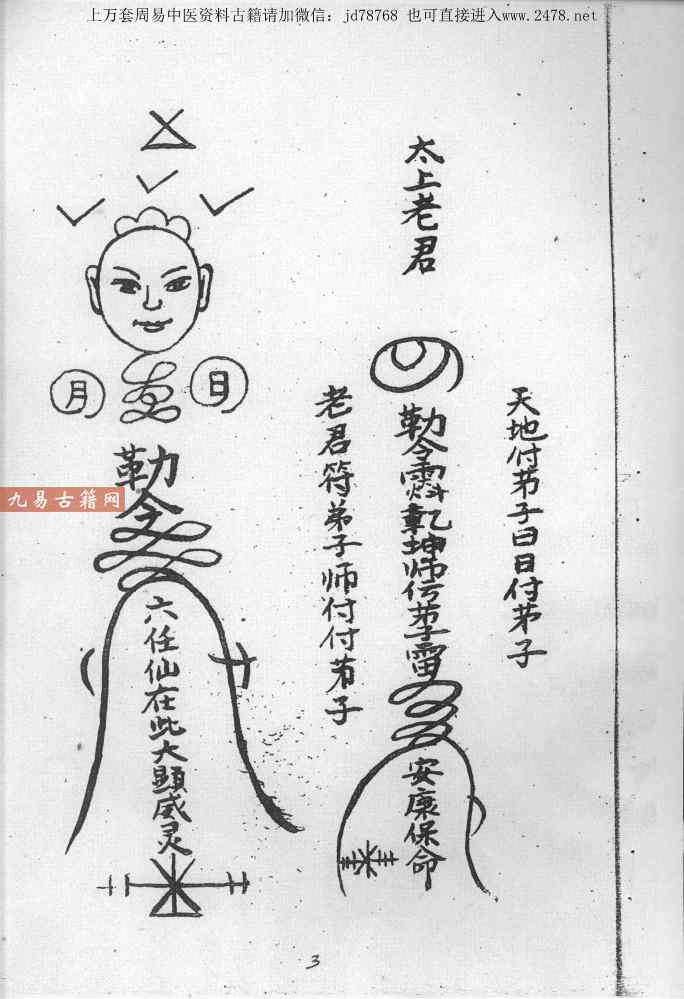 上万套周易中医资料古籍请加微信：jd78768 也可直接进入www.2478.net
天地付弟子曰日付弟子
太上老君
勒令
乾坤师付弟子雷
安康保命
老君符弟子师付付弟子
日
月
勒令
六任仙在此大顯威灵
九易古籍网
3